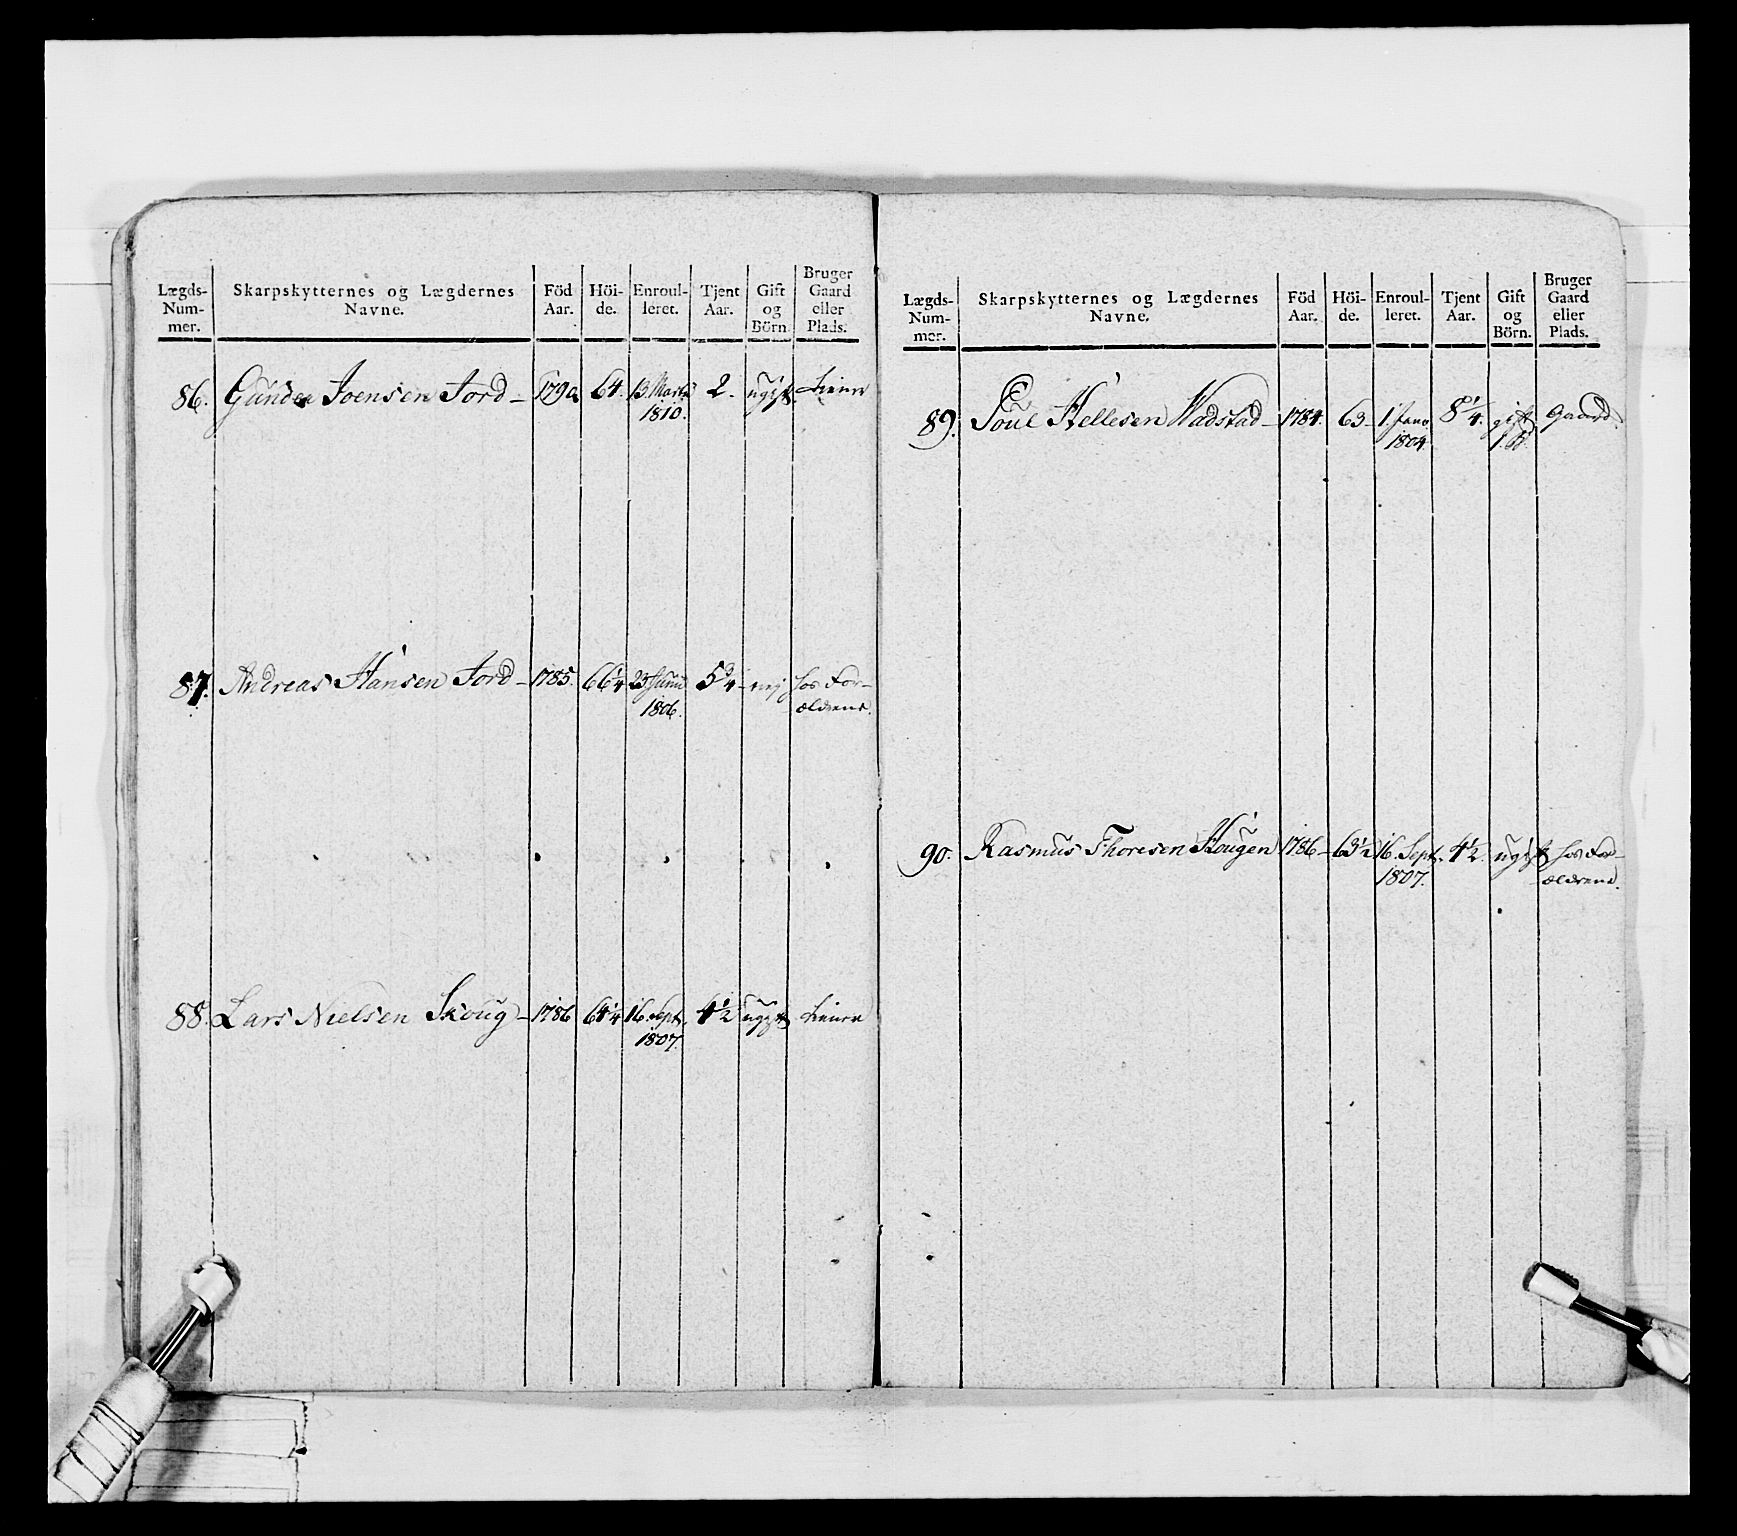 Lægds-Num-mer. Skarpskytternes og Lægdernes Navne. Föd Aar. Höi-de. Enroul-leret. Tjent Aar. Gift og Börn. Bruger Gaard eller Plads.
86. Gunder Joensen Jord - 1790 64. 13 Marti 2. ugift. tiener
1810.
87. Andreas Hansen Jord - 1785. 66 1/4 23 Junii 5 3/4 - nej hos For-
1806. ældrene.
88. Lars Nielsen Skoug - 1786 64 1/4 16. Sept. 4 1/2 ugift tiener
1807.
Lægds-Num-mer. Skarpskytternes og Lægdernes Navne. Föd Aar. Höi-de. Enroul-leret. Tjent Aar. Gift og Börn. Bruger Gaard eller Plads.
89. Poul Hellesen Wadstad - 1784. 63 - 1. Janv 8 1/4. gift Gaard.
1804. 1. B.
90. Rasmus Thoresen Hougen 1786 - 63 1/2 16. Sept. 4 1/2. ugift hos For-
1807. ældrene.